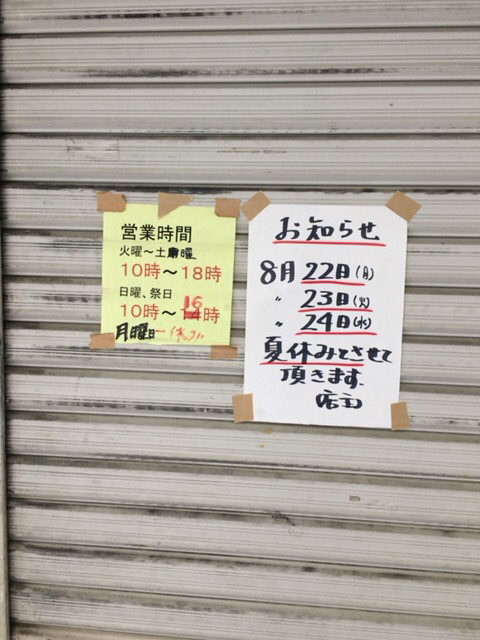 営業時間
火曜～土曜
10時～18時
日曜、祭日
10時～16時
月曜日一休み
お知らせ
8月22日(月)
〃 23日(火)
〃 24日(水)
夏休みとさせて
頂きます.
店主